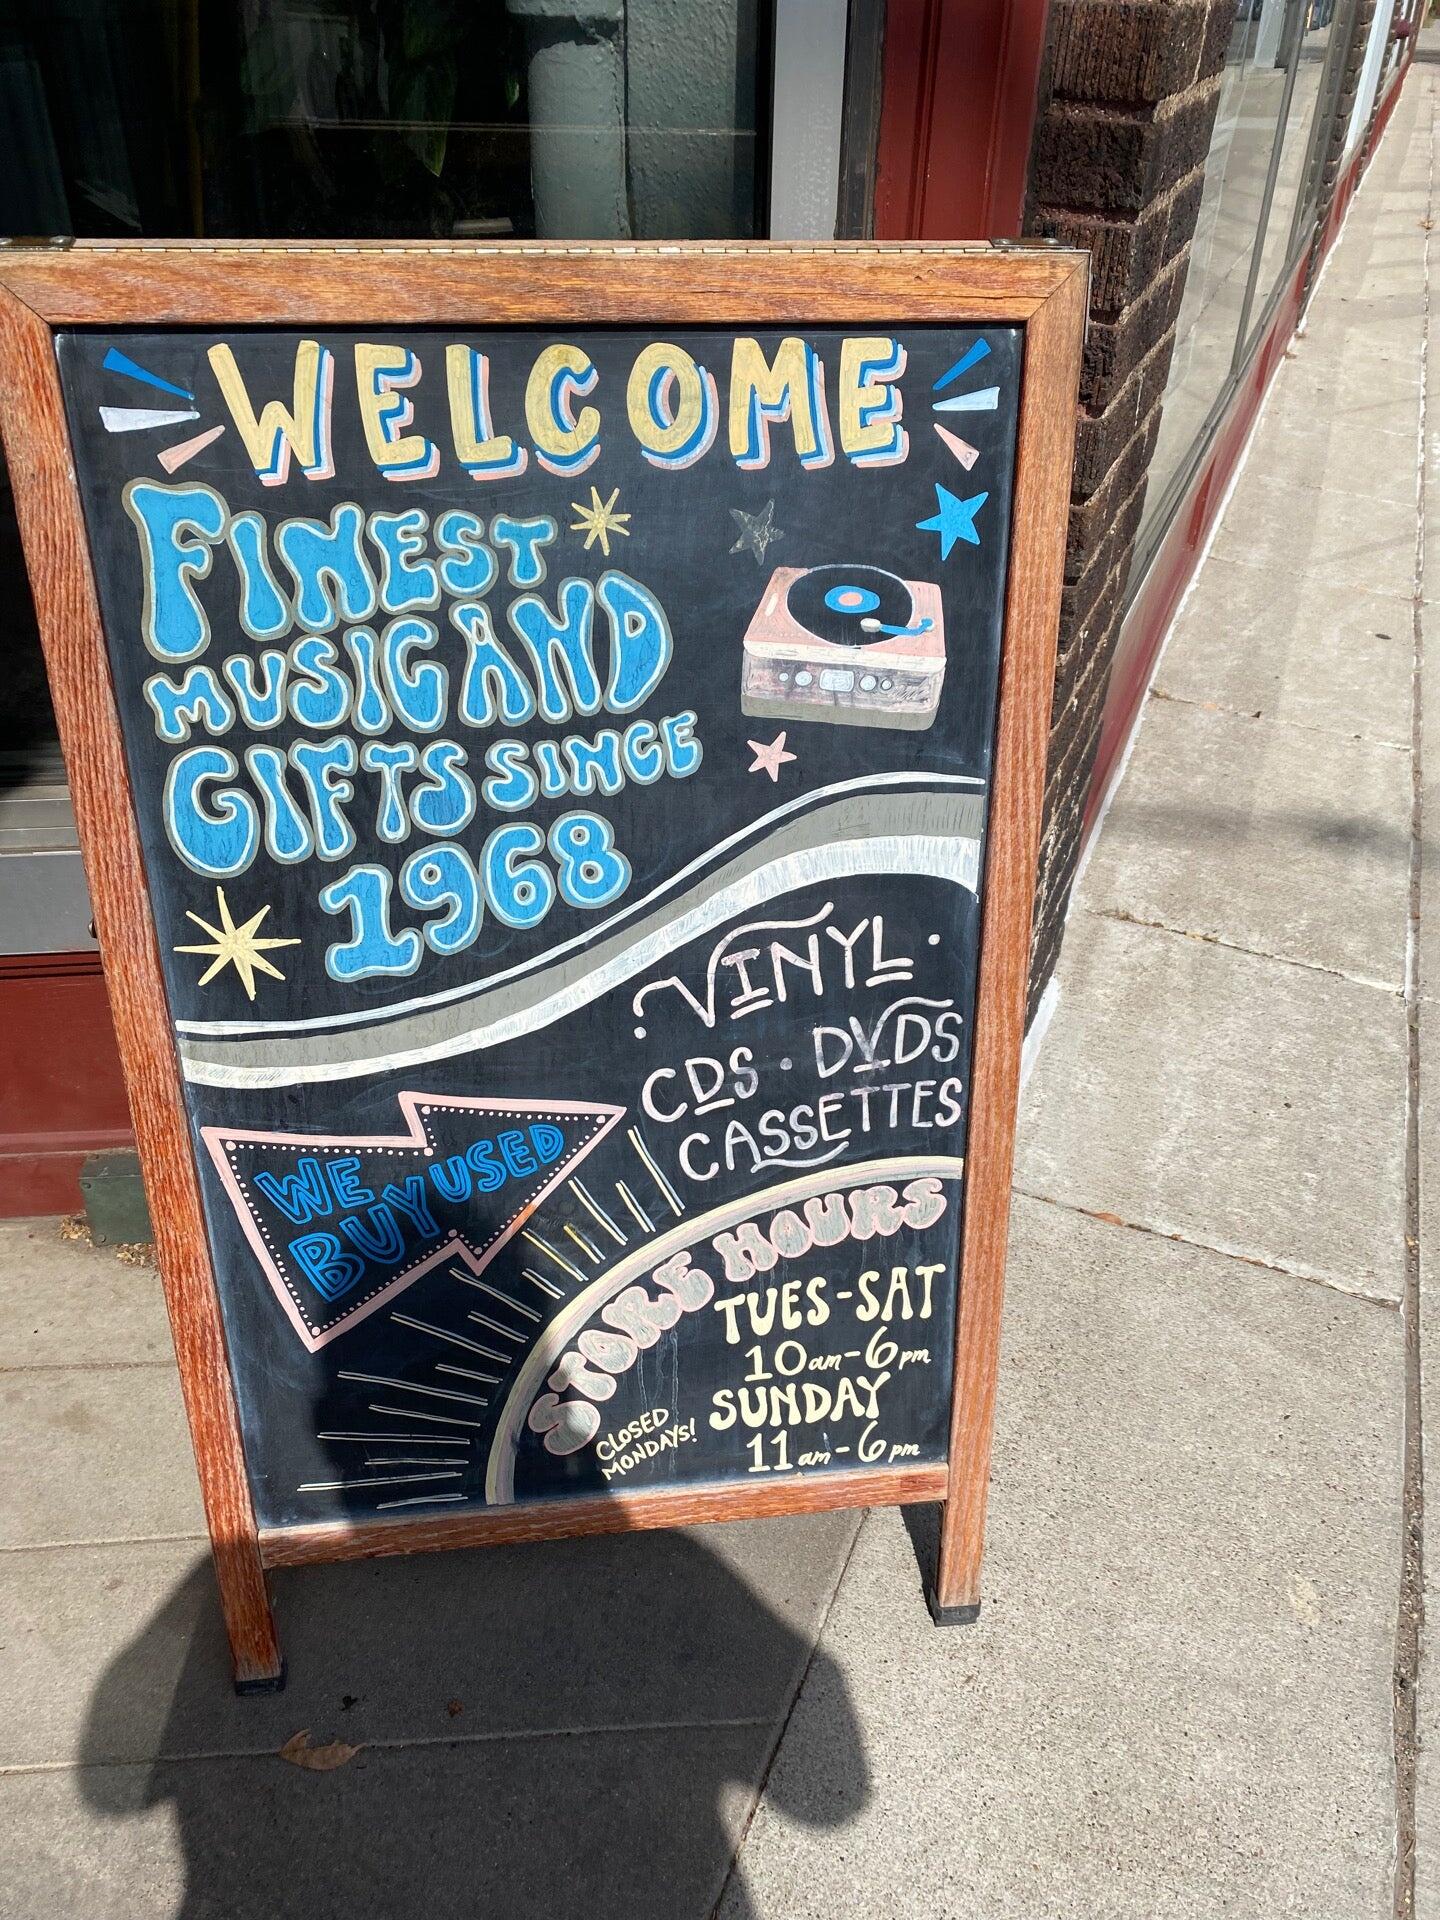 WELCOME
FINEST
MUSIC AND
GIFTS SINCE
1968
VINYL
CDS · DVDS
CASSETTES
WE
BUY USED
STORE HOURS
TUES-SAT
10am-6pm
SUNDAY
11am-6pm
CLOSED
MONDAYS!